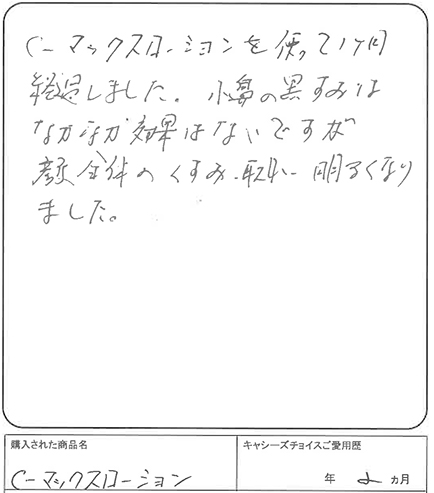 C-マックスローションを使って1ヶ月
経過しました。小鼻の黒ずみは
なかなか効果はないですが
顔全体のくすみ、取れ 明るくなり
ました。
購入された商品名
C-マックスローション
キャシーズチョイスご愛用歴
年 2 ヵ月